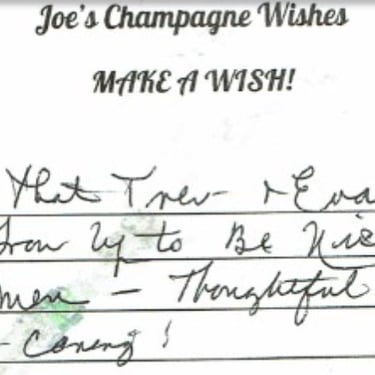 Joe's Champagne Wishes
MAKE A WISH!
That Trev + Eva
Grow Up to Be Nice
men — Thoughtful
- Caring!